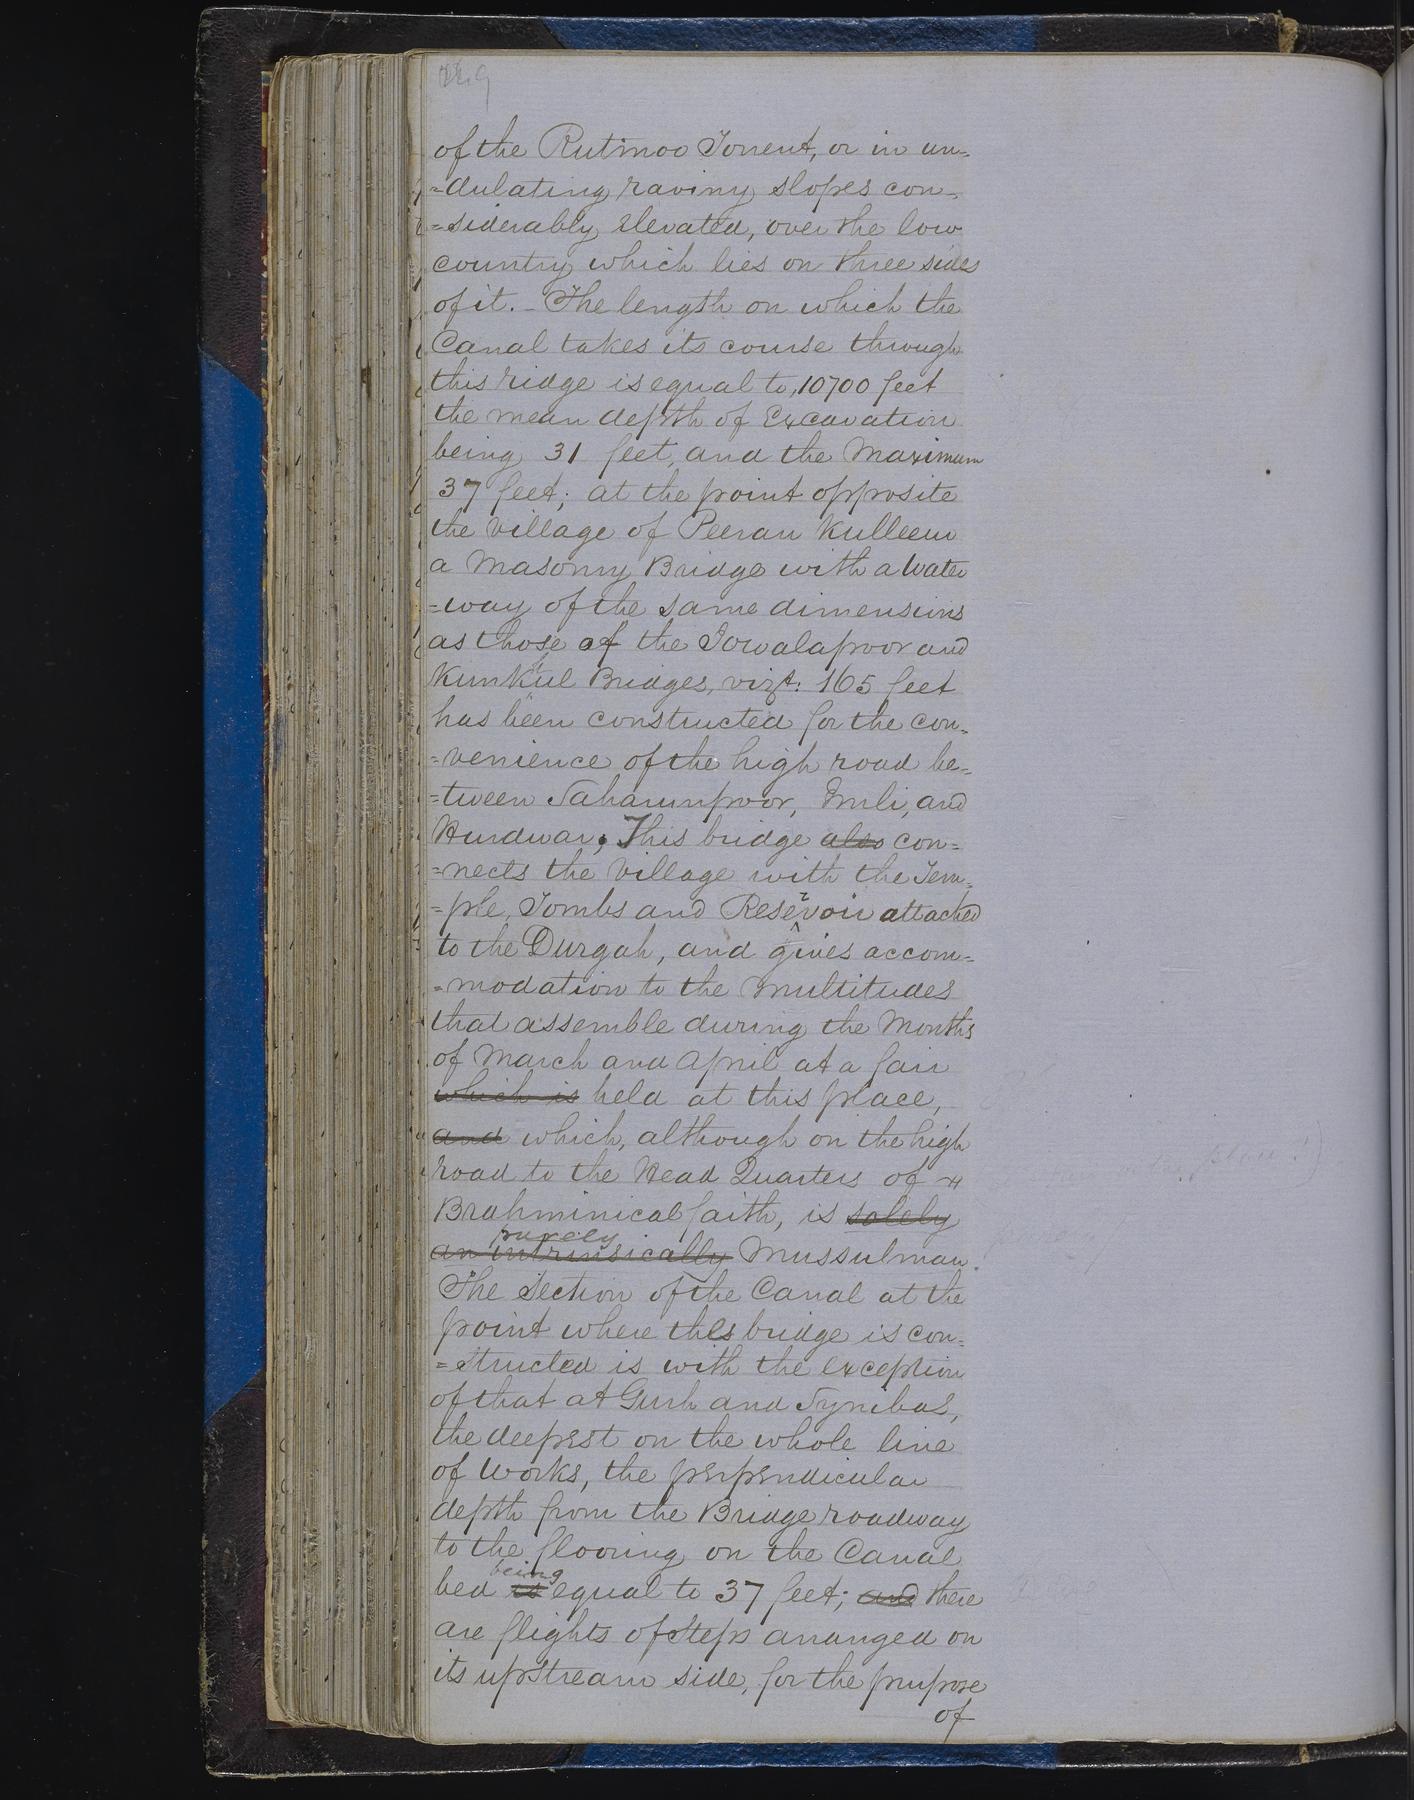 of the Rutmoo Torrent, or in un-
=dulating raviny slopes con-
=siderably elevated, over the low
country which lies on three sides
of it. - The length on which the
Canal takes its course through
this ridge is equal to, 10700 feet
the mean depth of Excavation
being 31 feet, and the Maximum
37 feet; at the point opposite
the Village of Peeran Kulleeur
a Masonry Bridge with a Water
=way of the same dimensions
as those of the Jowalapoor and
Kunkul Bridges, vizt. 165 feet
has been constructed for the con-
=venience of the high road be-
=tween Saharunpoor, Imli, and
Hurdwar; This bridge also con=
=nects the Village with the Tem-
=ple, Tombs and Reservoir attached
to the Durgah, and gives accom=
=modation to the Multitudes
that assemble during the Months
of March and April at a fair
which is held at this place,
and which, although on the high
road to the Head Quarters of
Brahminical faith, is solely
purely
an intrinsically Mussulman.
The Section of the Canal at the
point where this bridge is con=
=structed is with the exception
of that at Gurh and Synibas,
the deepest on the whole line
of Works, the perpendicular
depth from the Bridge roadway
to the flooring on the Canal
being
bed is equal to 37 feet; and there
are flights of Steps arranged on
its upstream side, for the purpose
of